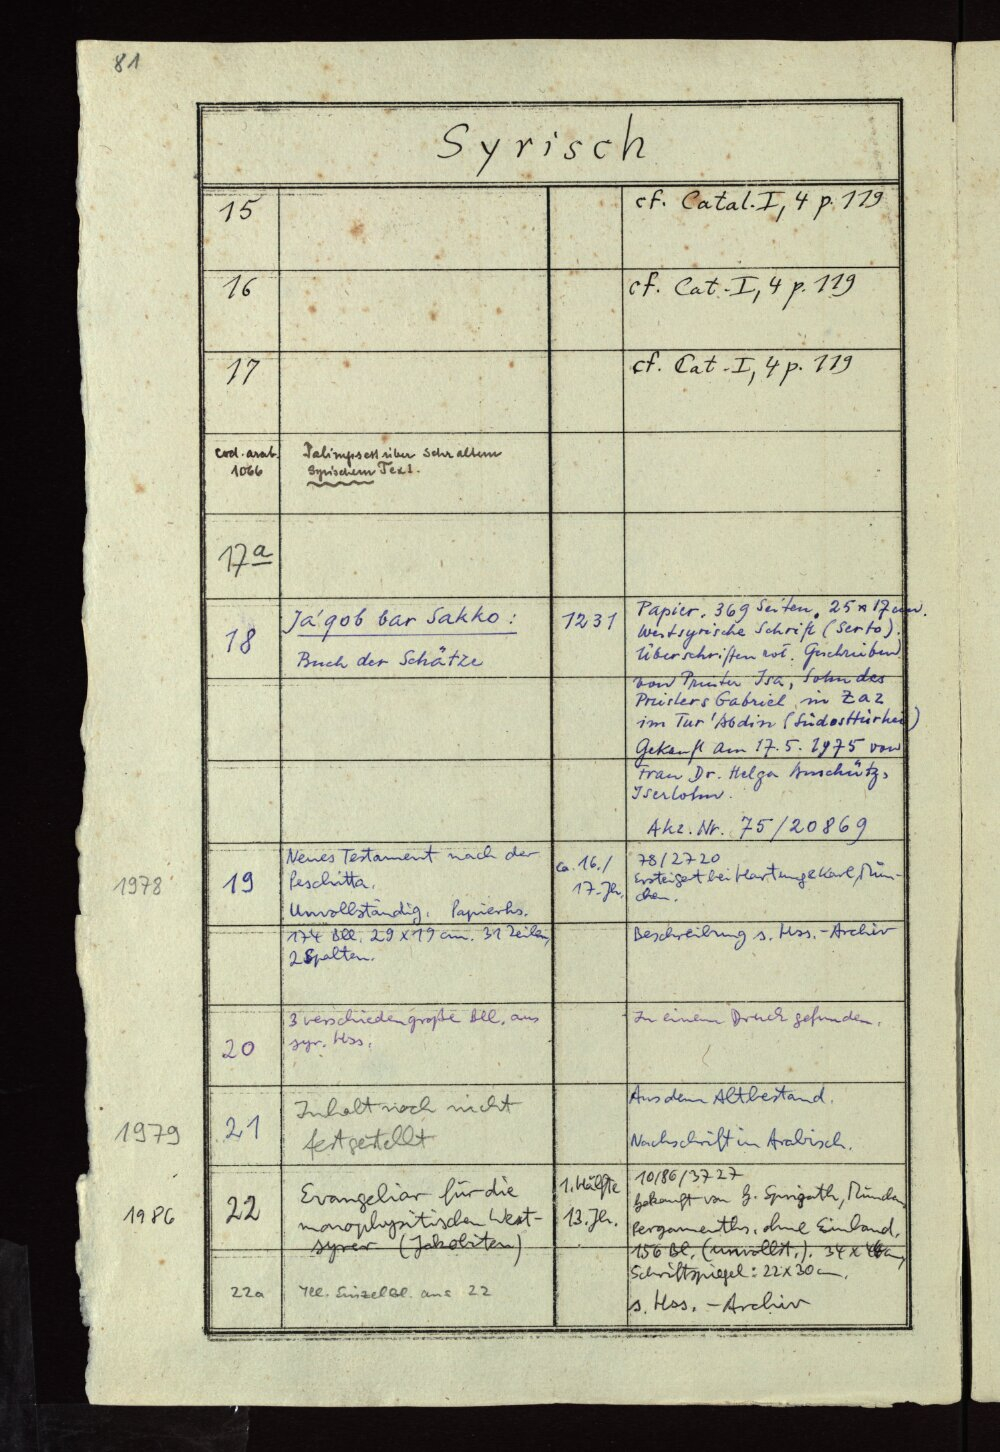 81
Syrisch
15 cf. Catal. I, 4 p. 119
16 cf. Cat. I, 4 p. 119
17 cf. Cat. I, 4 p. 119
cod. arab. 1066
Palimpsest über sehr altem
syrischem Text.
17a
18
Ja'qob bar Sakko:
Buch der Schätze
1231
Papier. 369 Seiten. 25 x 17 cm.
Westsyrische Schrift (Serto).
Überschriften rot. Geschrieben
von Priester Isa, Sohn des
Priesters Gabriel in Zaz
im Tur 'Abdin (Südosttürkei)
Gekauft am 17.5.1975 von
Frau Dr. Helga Anschütz,
Iserlohn.
Akz. Nr. 75/20869
1978
19
Neues Testament nach der
Peschitta.
Unvollständig. Papierhs.
174 Bll. 29 x 19 cm. 31 Zeilen,
2 Spalten.
ca. 16./
17. Jh.
78/2720
Ersteigert bei Hartung & Karl, Mün-
chen.
Beschreibung s. Hss.-Archiv
20
3 verschieden große Bll. aus
syr. Hss.
In einem Druck gefunden.
1979
21
Inhalt noch nicht
festgestellt
Aus dem Altbestand.
Nachschrift in Arabisch.
1986
22
Evangeliar für die
monophysitischen West-
syrer (Jakobiten)
1. Hälfte
13. Jh.
10/86/3727
Gekauft von München
Pergamenths. ohne Einband.
156 Bl. (unvollst.). 34 x
Schriftspiegel: 22 x 30 cm.
s. Hss.-Archiv
22a
Ill. Einzelbl. aus 22